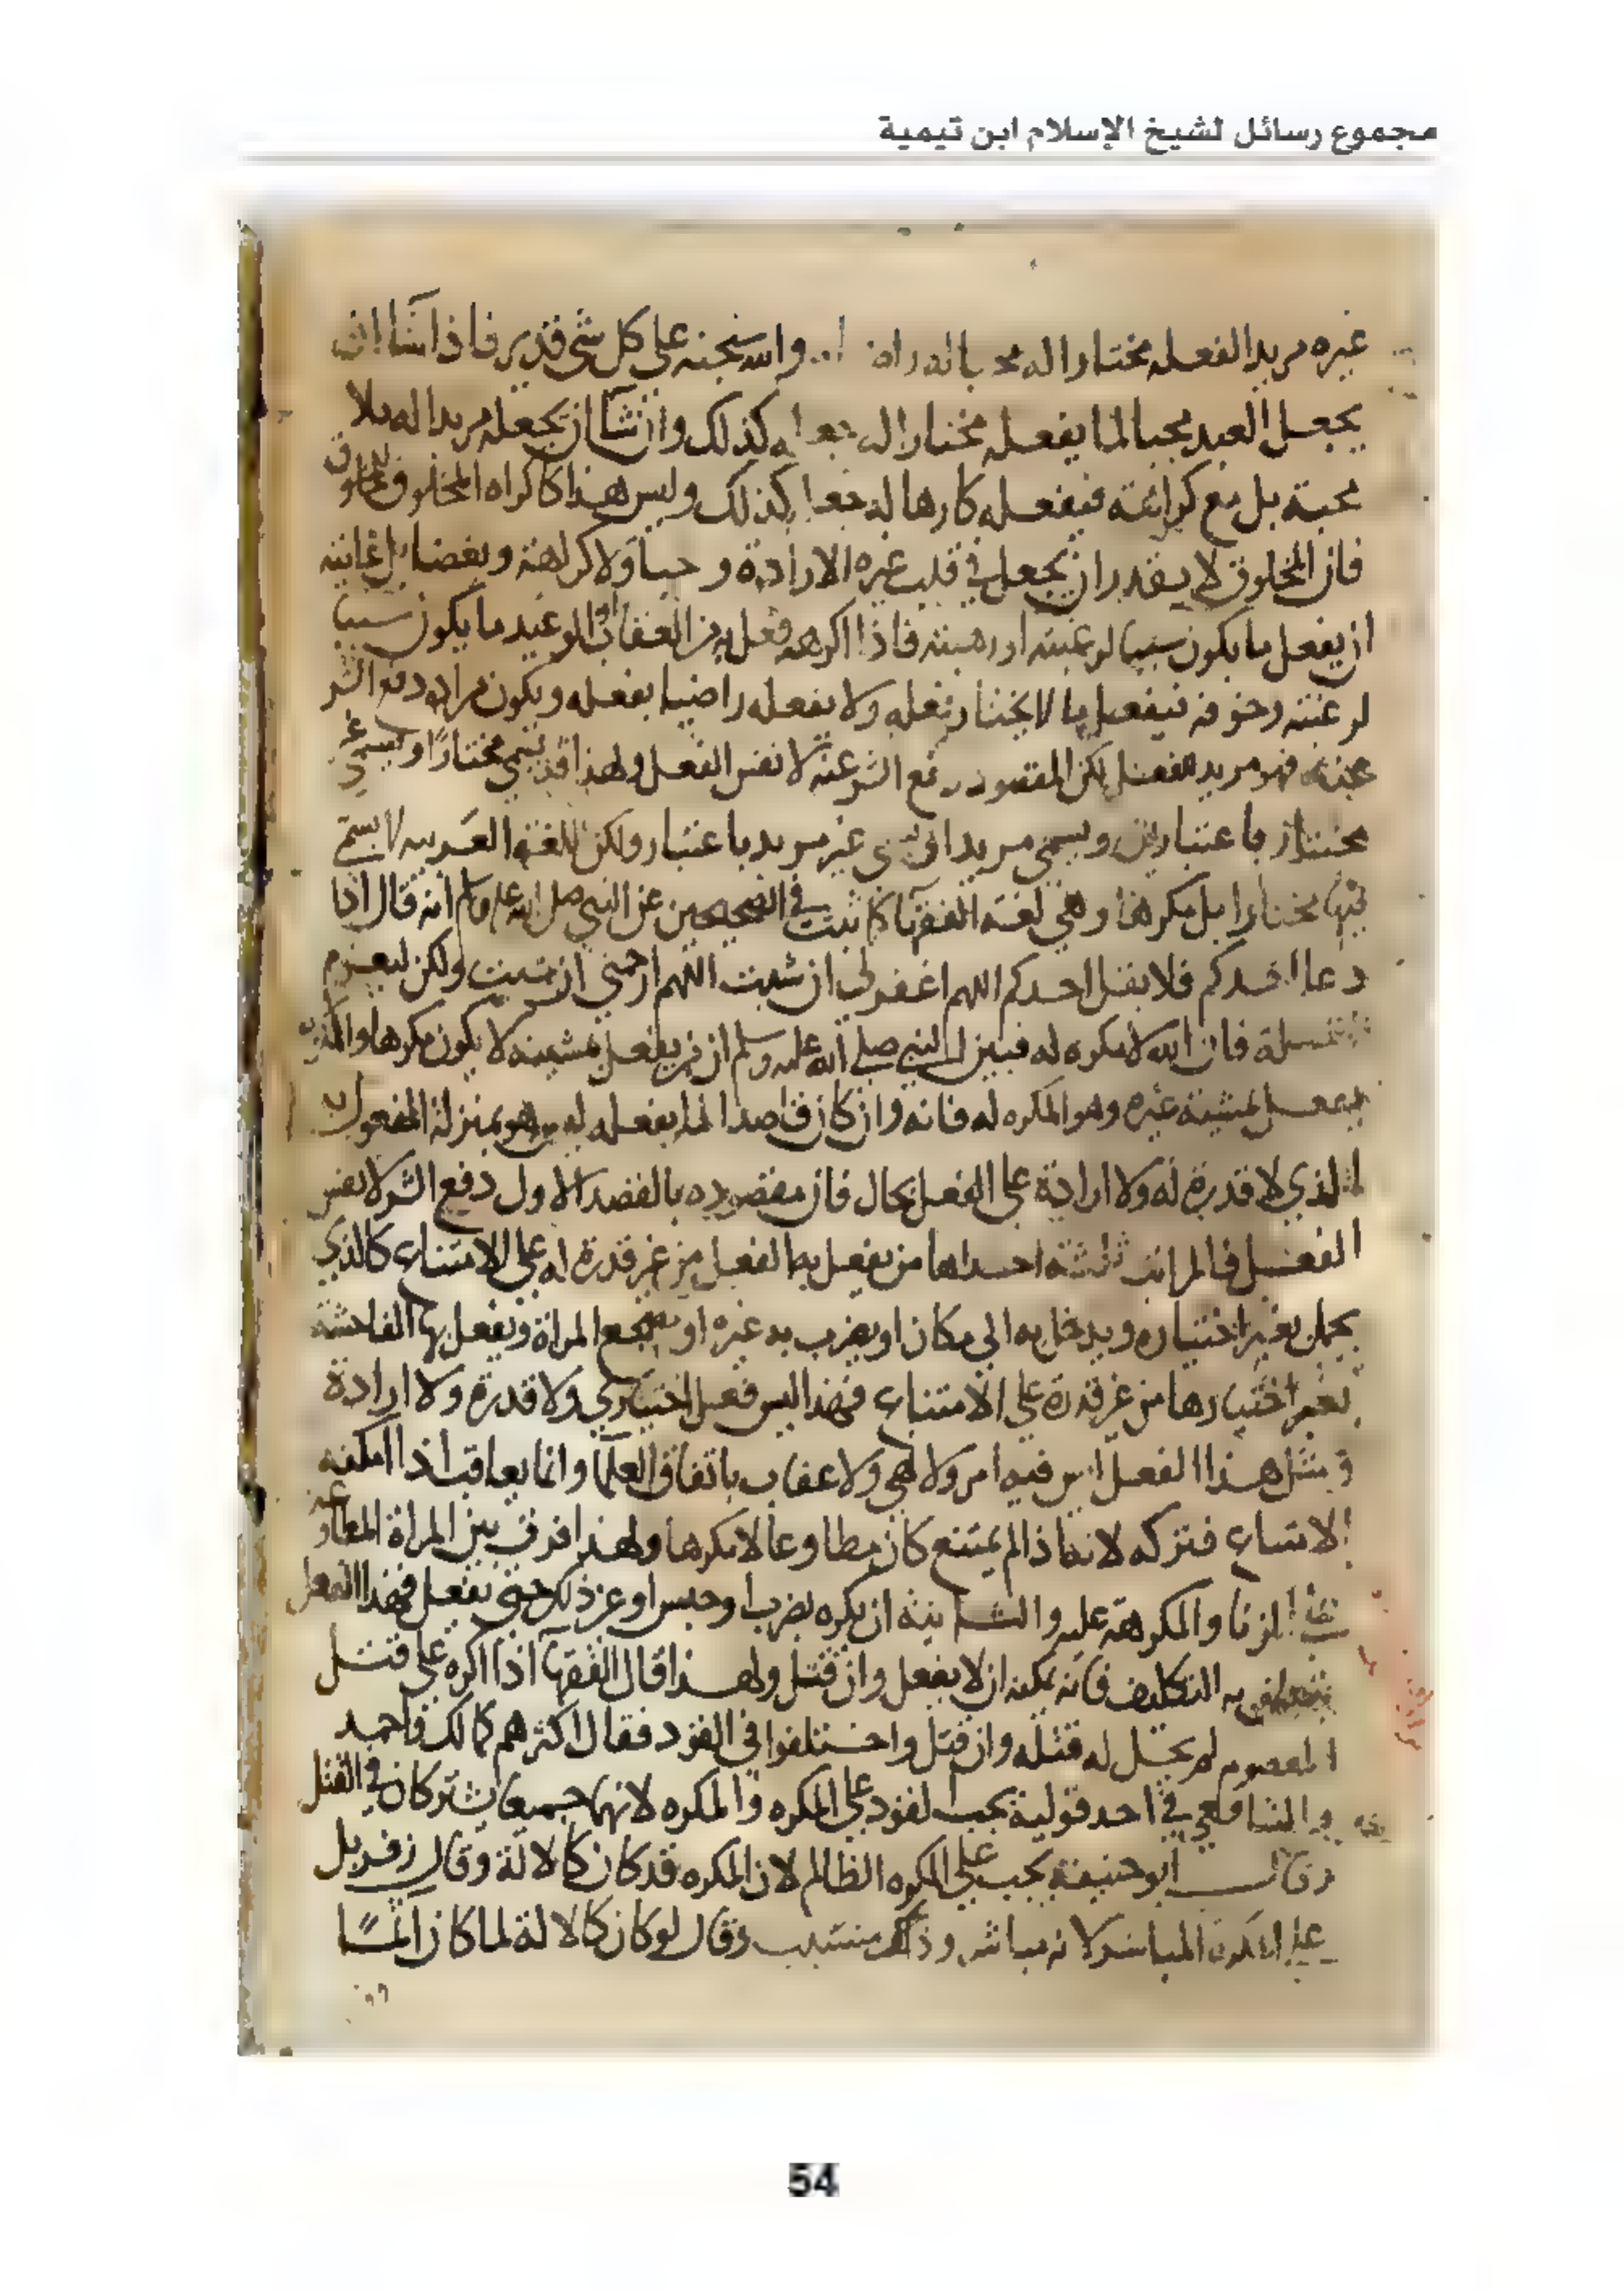 مجموع رسائل لشيخ الإسلام ابن تيمية
غيره مريدا لفعله مختارا له محبا له راضيا والله سبحنه على كل شي قدير فاذا شا ان
يجعل العبد محبا لما يفعله مختارا له جعله كذلك وان شا ان يجعله مريدا له بلا
محبة بل مع كراهة فيفعله كارها له جعله كذلك وليس هذا كاكراه المخلوق للمخلوق
فان المخلوق لا يقدر ان يجعل في قلب غيره الارادة وحبا ولا كراهة وبغضا بل غايته
ان يفعل ما يكون سببا لرغبته او رهبته فاذا اكرهه فعل به من العقاب او الوعيد ما يكون سببا
لرغبته وخوفه فيفعل ما لا يختار فعله ولا يفعله راضيا بفعله ويكون مراده دفع الشر
عنه فهو مريد للفعل لكن المقصود دفع الشر عنه لا نفس الفعل ولهذا قد يسمى مختارا ويسمى غير
مختار باعتبارين ويسمى مريدا ويسمى غير مريد باعتبار ولكن اللغة العربية لا يسمى
فيها مختارا بل مكرها وهي لغة الفقها كما ثبت في الصحيحين عن النبي صلى الله عليه وسلم انه قال اذا
دعا احدكم فلا يقل احدكم اللهم اغفر لي ان شيت اللهم ارحمني ان شيت ولكن ليعزم
المسلة فان الله لا مكره له فبين النبي صلى الله عليه وسلم ان من يفعل بمشيته لا يكون مكرها والمكره
يفعل بمشيئة غيره وهو المكره له فانه وان كان قاصدا لما يفعله ليس هو بمنزلة المفعول به
الذي لا قدرة له ولا ارادة على الفعل بحال فان مقصوده بالقصد الاول دفع الشر لا نفس
الفعل فالمراتب ثلثة احداها من يفعل به الفعل من غير قدرة له على الامتناع كالذي
يحمل بغير اختياره ويدخل به الى مكان او يضرب به غيره او تضجع المراة ويفعل بها الفاحشة
بغير اختيارها من غير قدرة على الامتناع فهذا ليس فعل اختياري ولا قدرة ولا ارادة
ومثل هذا الفعل ليس فيه امر ولا نهي ولا عقاب باتفاق العلما وانما يعاقب اذا امكنه
الامتناع فتركه لانه اذا لم يمتنع كان مطاوعا لا مكرها ولهذا فرق بين المراة المطاوعة
على الزنا والمكرهة عليه والثانية ان يكره بضرب او حبس او غير ذلك حتى يفعل فهذا الفعل
يتعلق به التكليف فانه يمكنه ان لا يفعل وان قتل ولهذا قال الفقها اذا اكره على قتل
المعصوم لم يحل له قتله وان قتل واختلفوا في القود فقال اكثرهم كمالك واحمد
والشافعي في احد قوليه يجب القود على المكره والمكره لانهما جميعا يشتركان في القتل
وقال ابو حنيفة يجب على المكره الظالم لان المكره قد كان كالالة وقال زفر بل
على المكره المباشر لانه مباشر وذاك متسبب وقال لو كان كالالة لما كان اثما
54